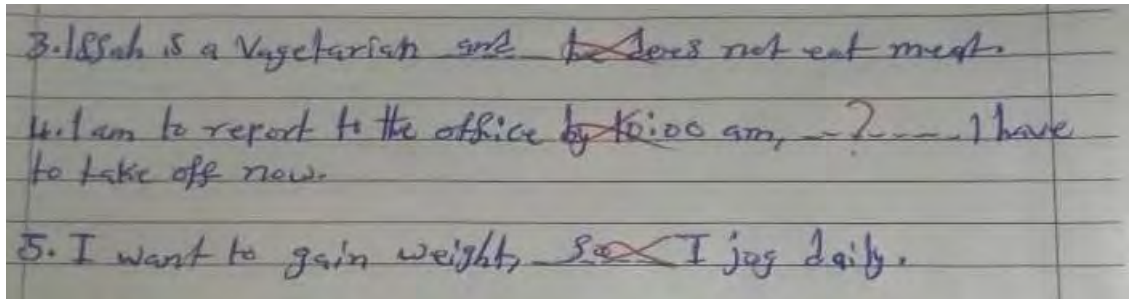 3. Issah is a Vagetarian and he does not eat meat.
4. I am to report to the office by 10:00 am, --?---- I have
to take off now.
5. I want to gain weight, So I jog daily.